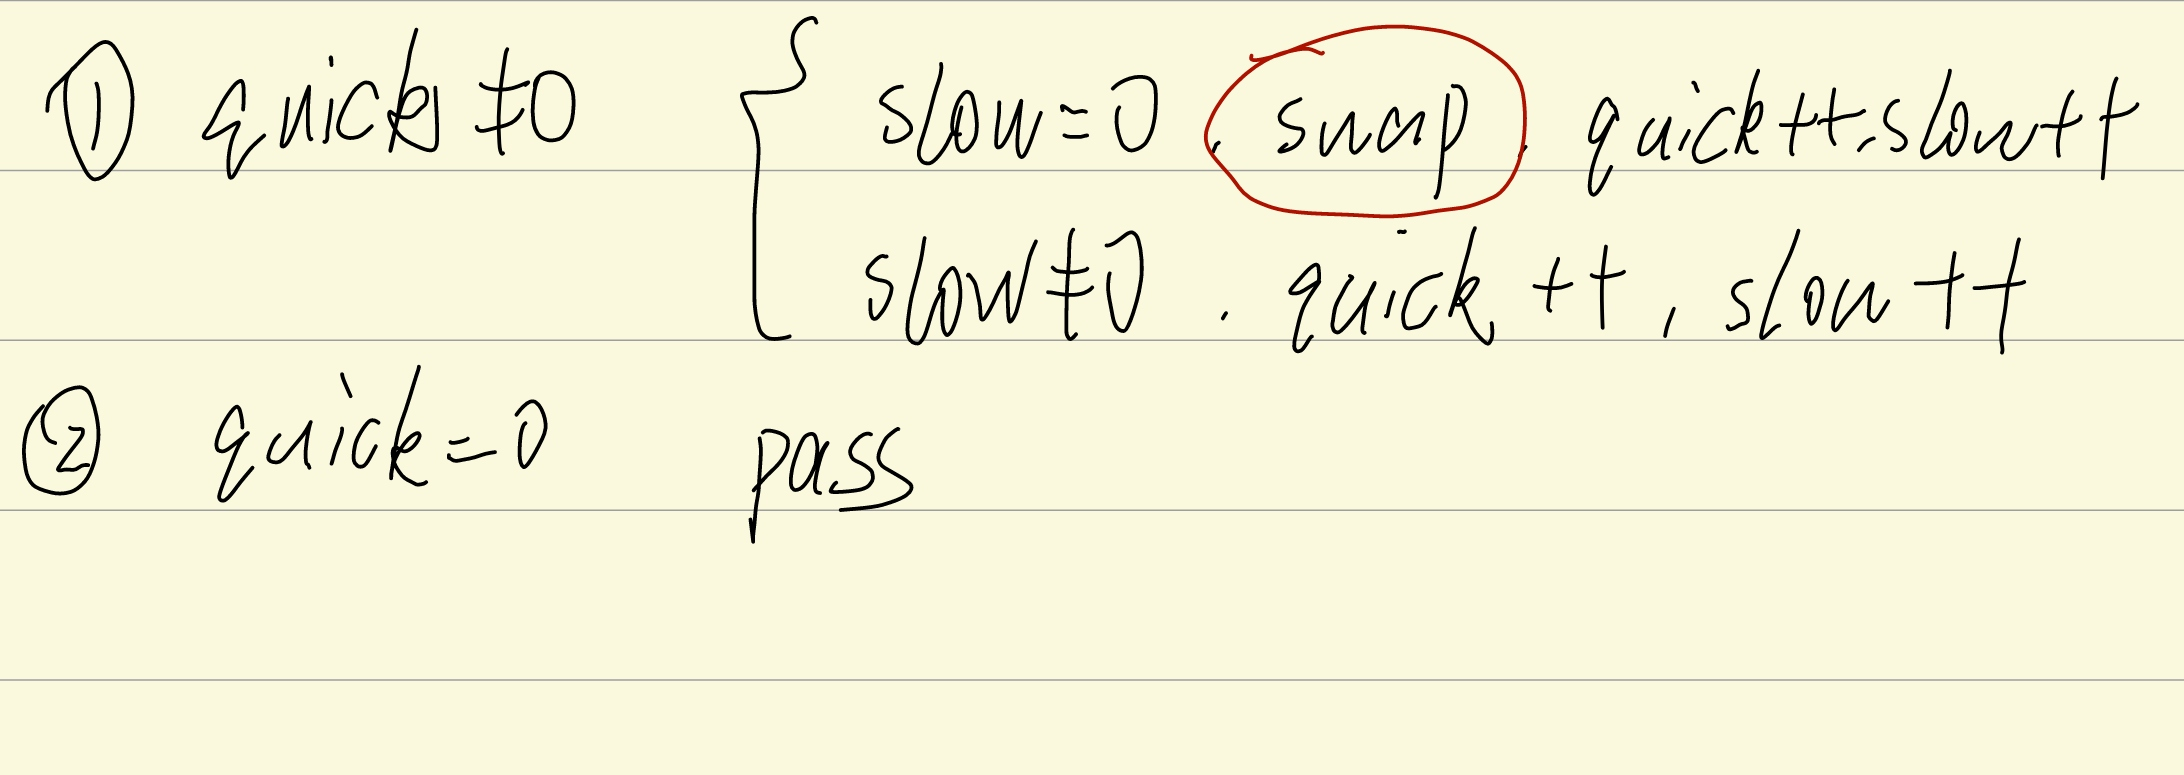 ① quick≠0 { slow=0, swap, quick++, slow++
slow≠0, quick++, slow++
② quick=0 pass